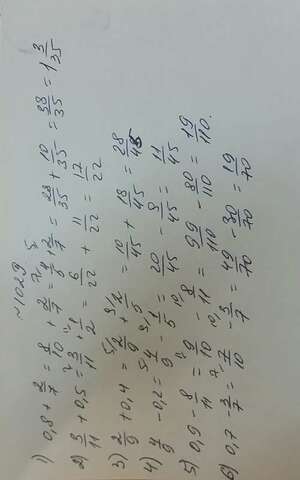 ~1029
1) 0,8 + 2/7 = 8/10 + 2/7 = 4/5 + 2/7 = 28/35 + 10/35 = 38/35 = 1 3/35
2) 3/11 + 0,5 = 3/11 + 1/2 = 6/22 + 11/22 = 17/22
3) 2/9 + 0,4 = 2/9 + 2/5 = 10/45 + 18/45 = 28/45
4) 4/9 - 0,2 = 4/9 - 1/5 = 20/45 - 9/45 = 11/45
5) 0,9 - 8/11 = 9/10 - 8/11 = 99/110 - 80/110 = 19/110.
6) 0,7 - 3/7 = 7/10 - 3/7 = 49/70 - 30/70 = 19/70